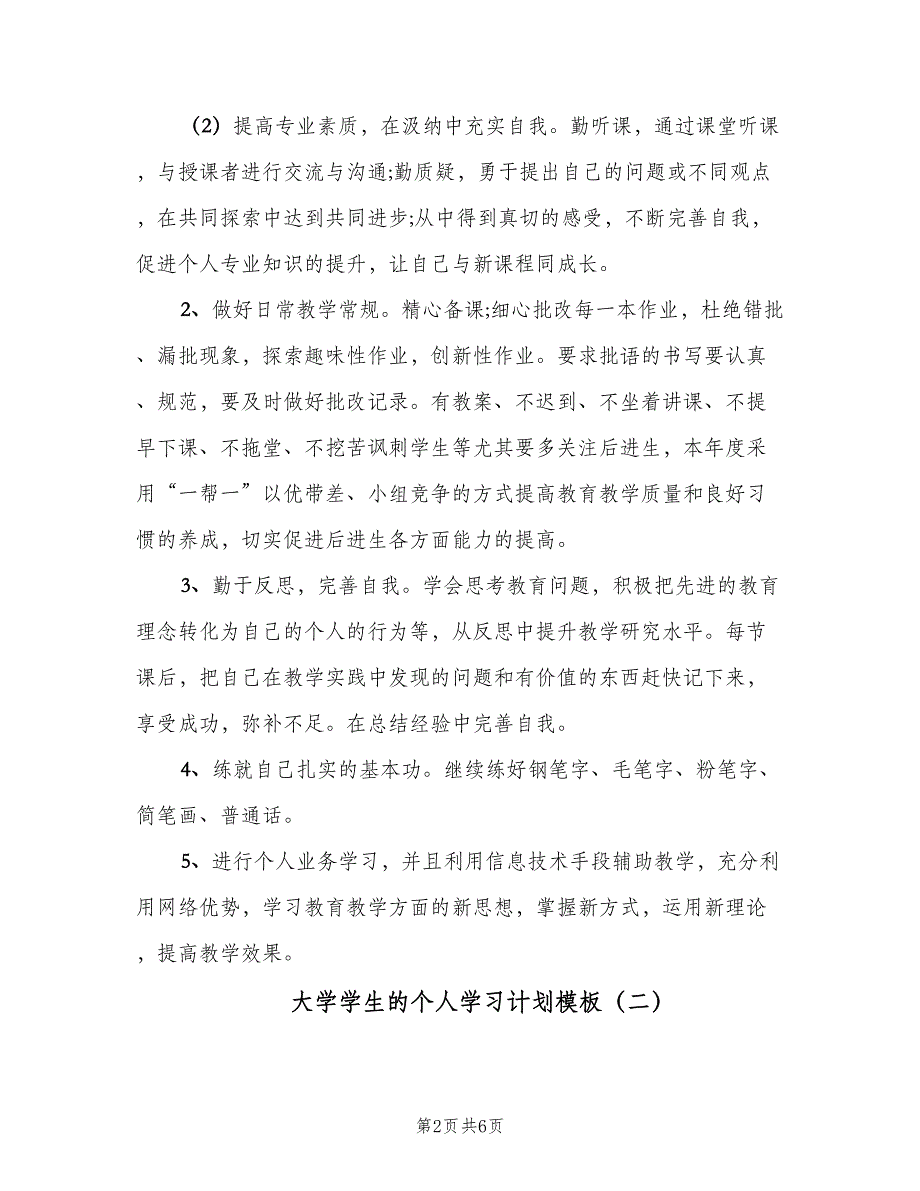 （2）提高专业素质，在汲纳中充实自我。勤听课，通过课堂听课
，与授课者进行交流与沟通;勤质疑，勇于提出自己的问题或不同观点
，在共同探索中达到共同进步;从中得到真切的感受，不断完善自我，
促进个人专业知识的提升，让自己与新课程同成长。
2、做好日常教学常规。精心备课;细心批改每一本作业，杜绝错批
、漏批现象，探索趣味性作业，创新性作业。要求批语的书写要认真
、规范，要及时做好批改记录。有教案、不迟到、不坐着讲课、不提
早下课、不拖堂、不挖苦讽刺学生等尤其要多关注后进生，本年度采
用“一帮一”以优带差、小组竞争的方式提高教育教学质量和良好习
惯的养成，切实促进后进生各方面能力的提高。
3、勤于反思，完善自我。学会思考教育问题，积极把先进的教育
理念转化为自己的个人的行为等，从反思中提升教学研究水平。每节
课后，把自己在教学实践中发现的问题和有价值的东西赶快记下来，
享受成功，弥补不足。在总结经验中完善自我。
4、练就自己扎实的基本功。继续练好钢笔字、毛笔字、粉笔字、
简笔画、普通话。
5、进行个人业务学习，并且利用信息技术手段辅助教学，充分利
用网络优势，学习教育教学方面的新思想，掌握新方式，运用新理论
，提高教学效果。
大学学生的个人学习计划模板（二）
第2页 共6页